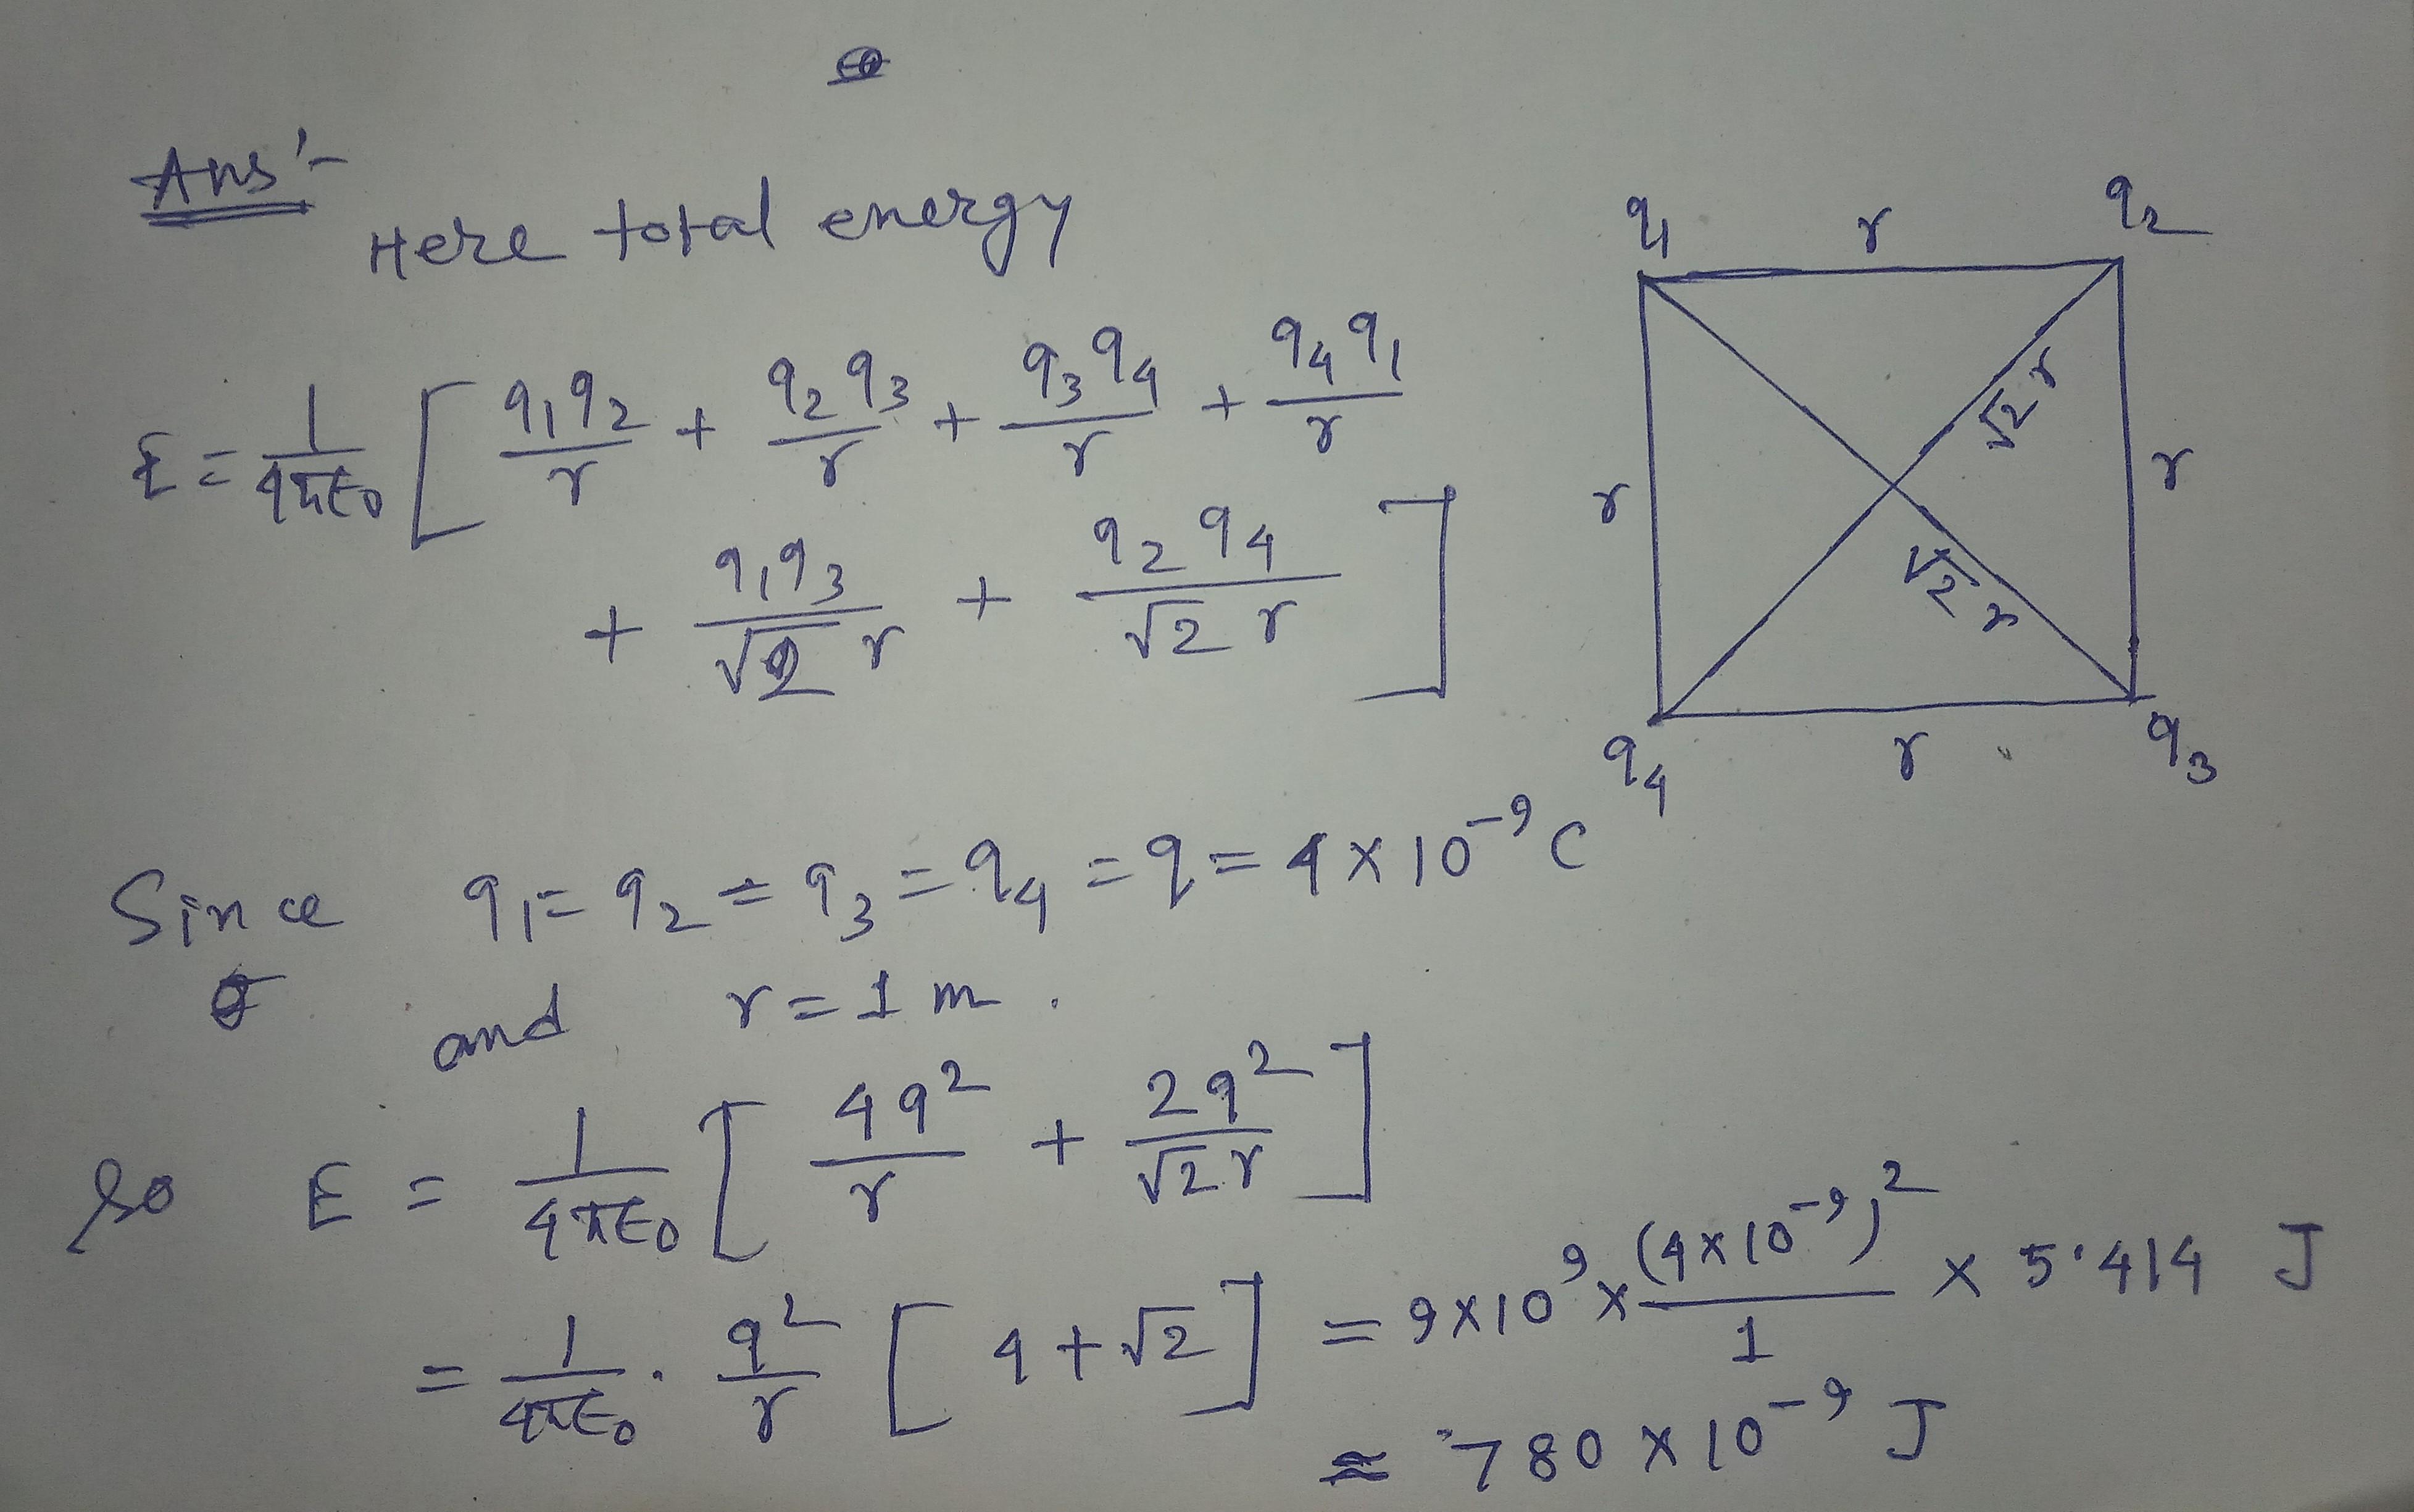 Ans:-
Here total energy
E = 1/4πε₀ [ q₁q₂/r + q₂q₃/r + q₃q₄/r + q₄q₁/r
+ q₁q₃/√2 r + q₂q₄/√2 r ]
q₁ r q₂
r √2 r √2 r r
q₄ r q₃
Since q₁ = q₂ = q₃ = q₄ = q = 4 × 10⁻⁹ C
and r = 1 m.
So E = 1/4πε₀ [ 4q²/r + 2q²/√2 r ]
= 1/4πε₀ · q²/r [ 4 + √2 ] = 9 × 10⁹ × (4 × 10⁻⁹)²/1 × 5.414 J
≈ 780 × 10⁻⁹ J